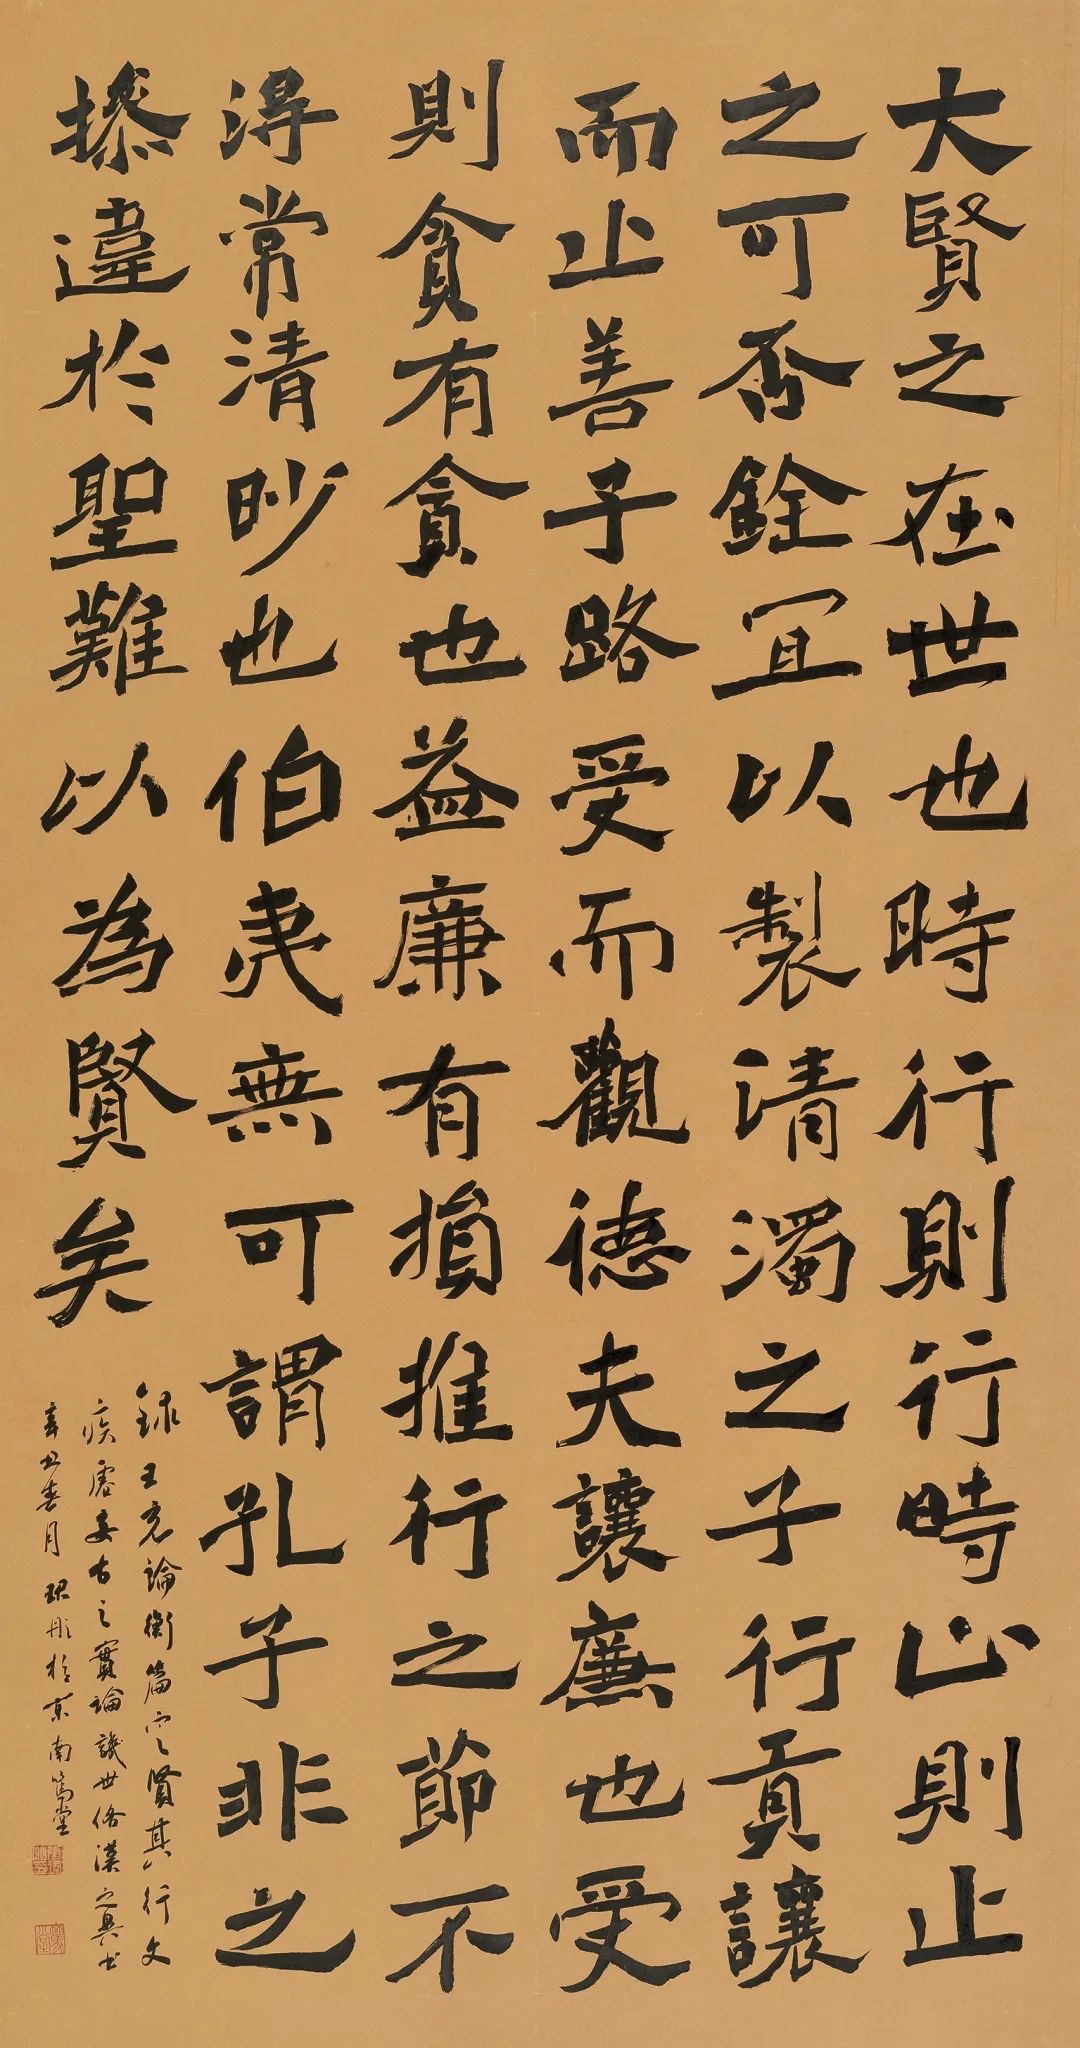 大賢之在世也時行則行時止則止
之可否銓冝以製清濁之子行貢讓
而止善子路受而觀德夫讓廉也受
則貪有貪也益廉有損推行之節不
淂常清眇也伯夷無可謂孔子非之
操違於聖難以為賢矣
錄王充論衡篇定賢其行文
疾虛妄古之實論譏世俗漢之異書
辛丑春月彤於京南篤堂